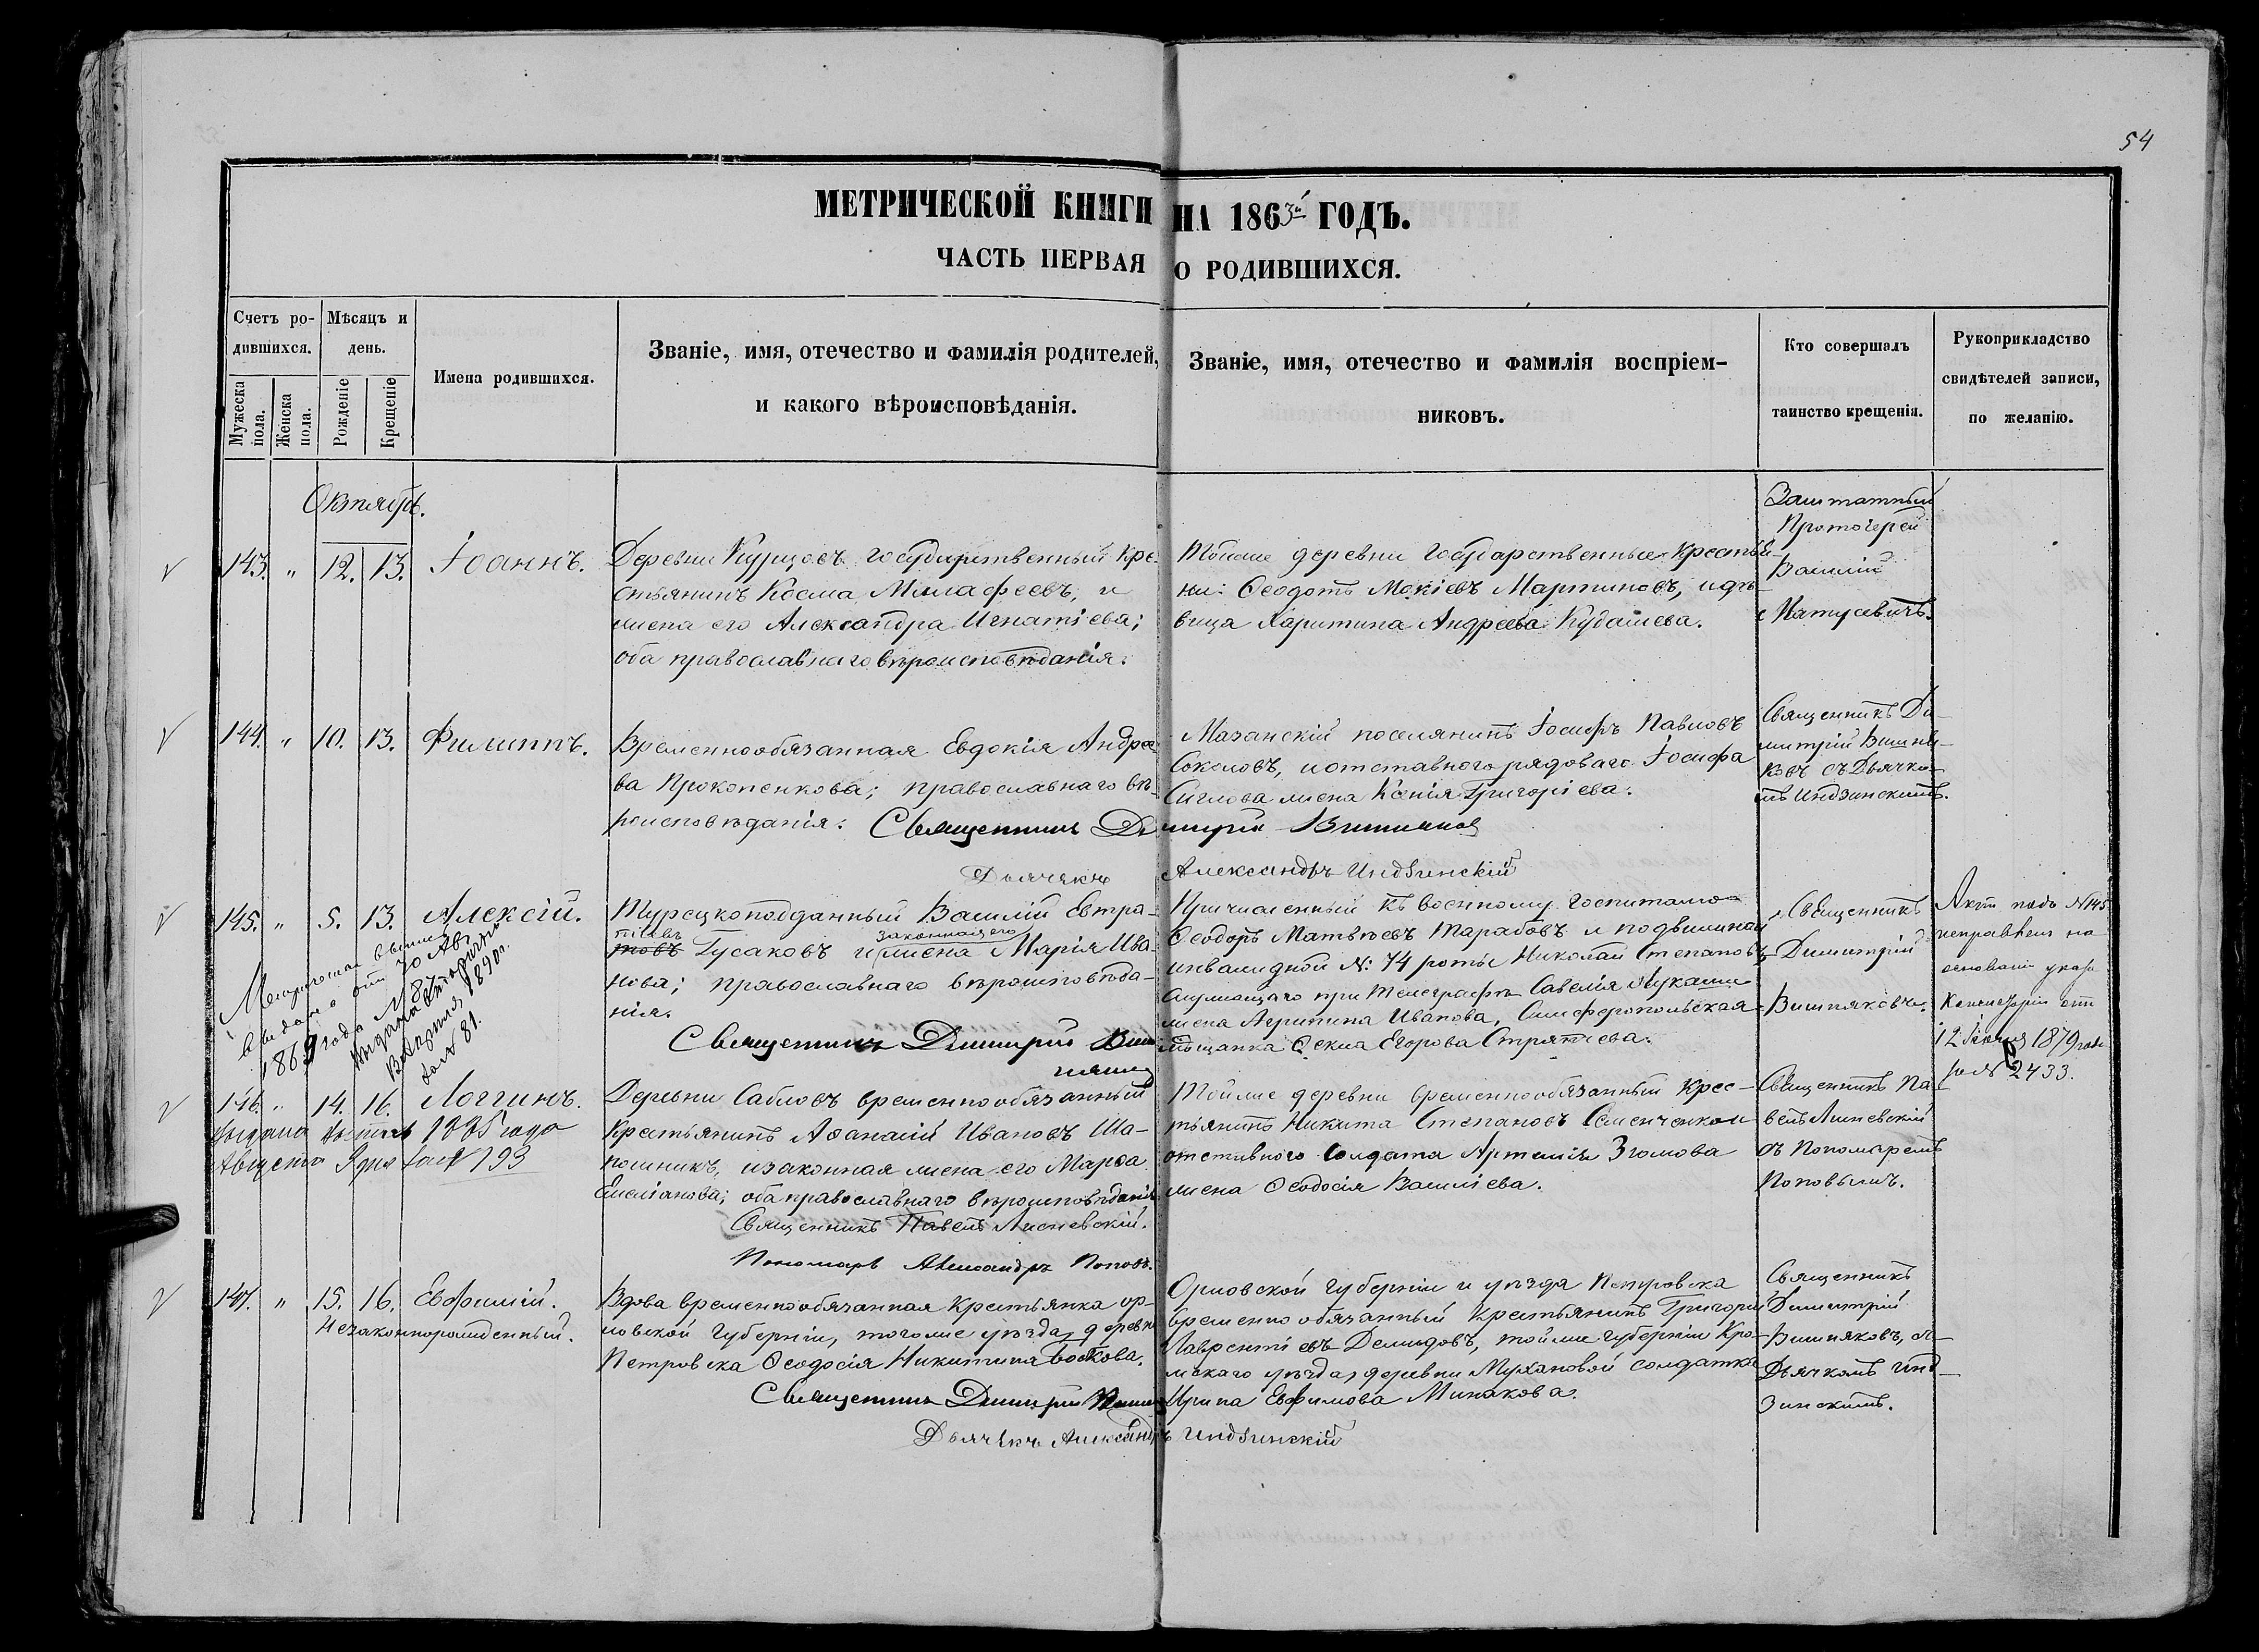 54
МЕТРИЧЕСКОЙ КНИГИ НА 1863й ГОДЪ.
ЧАСТЬ ПЕРВАЯ О РОДИВШИХСЯ.
Счетъ ро-
дившихся.
Мужеска пола.
Женска пола.
Мѣсяцъ и
день.
Рожденіе
Крещеніе
Имена родившихся.
Званіе, имя, отечество и фамилія родителей,
и какого вѣроисповѣданія.
Званіе, имя, отечество и фамилія воспріем-
никовъ.
Кто совершалъ
таинство крещенія.
Рукоприкладство
свидѣтелей записи,
по желанію.
Октябрь.
143. " 12. 13. Іоаннъ.
Деревни Курцовъ государственный кре-
стьянинъ Косма Малафеевъ, и
жена его Александра Игнатіева;
оба православнаго вѣроисповѣданія.
Тойже деревни государственные крестья-
не: Ѳеодотъ Мокіевъ Мартиновъ, и дѣ-
вица Харитина Андреева Кудашева.
Заштатный
Протоіерей
Василій
Матусевичъ.
144. " 10. 13. Филиппъ.
Временнообязанная Евдокія Андрее-
ва Прокопенкова; православнаго вѣ-
роисповѣданія.
Мазанскій поселянинъ Іосифъ Павловъ
Соколовъ, и отставного рядоваго Іосифа
жена Ксенія Григоріева.
Священникъ Ди-
митрій Вишня-
ковъ съ Дьячко-
мъ Индзинскимъ.
Священникъ Димитрій Вишняковъ
Дьячекъ Александръ Индзинскій
145. " 5. 13. Алексій.
Турецкоподданный Василій Евтра-
тіевъ законная его
товъ Гусаковъ и жена Марія Ива-
нова; православнаго вѣроисповѣда-
нія.
Священникъ Димитрій Виш
няковъ
Причисленный къ военному госпиталю
Ѳеодоръ Матвѣевъ Тарабовъ и подвижной
инвалидной №: 74 роты Николай Степановъ,
служащаго при Телеграфѣ Савелія Лукаша
жена Агрипина Иванова, Симферопольская
мѣщанка Ѳекла Егорова Стряпчева.
Священникъ
Димитрій
Вишняковъ.
Актъ подъ №145
исправленъ на
основаніи указа
Консисторіи отъ
12 Іюня 1879 года
за № 2433.
146. " 14. 16. Логгинъ.
выдана 1885 года
Августа 9 дня за № 193
Деревни Сабловъ временнообязанный
крестьянинъ Аѳанасій Ивановъ Ша-
пошникъ, и законная жена его Марѳа
Емеліанова; оба православнаго вѣроисповѣданія
Священникъ Павелъ Лисневскій.
Пономарь Александръ Поповъ.
Тойже деревни временнообязанный крес-
тьянинъ Никита Степановъ Семенченко и
отставного солдата Артемія Згомова
жена Ѳеодосія Василіева.
Священникъ Па-
велъ Лисневскій
съ Пономаремъ
Поповымъ.
147. " 15. 16. Евфимій.
Незаконнорожденный.
Вдова временнообязанная крестьянка ор-
ловской губерніи, тогоже уѣзда, деревни
Петровска Ѳеодосія Никитина Бокова.
Священникъ Димитрій Вишн
Дьячекъ Александръ Индзинскій
Орловской губерніи и уѣзда Петровска
временнообязанный крестьянинъ Григорій
Лаврентіевъ Демидовъ, тойже губерніи Кро-
мскаго уѣзда, деревни Мухановой солдатка
Ирина Евфимова Минакова.
Священникъ
Димитрій
Вишняковъ, съ
Дьячкомъ Инд-
зинскимъ.